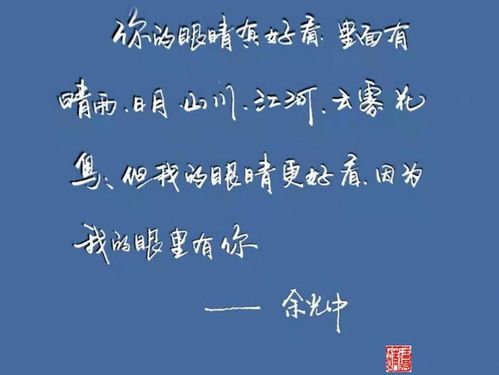 你的眼睛真好看,里面有
晴雨、日月、山川、江河、云雾、花
鸟、但我的眼睛更好看,因为
我的眼里有你
——余光中